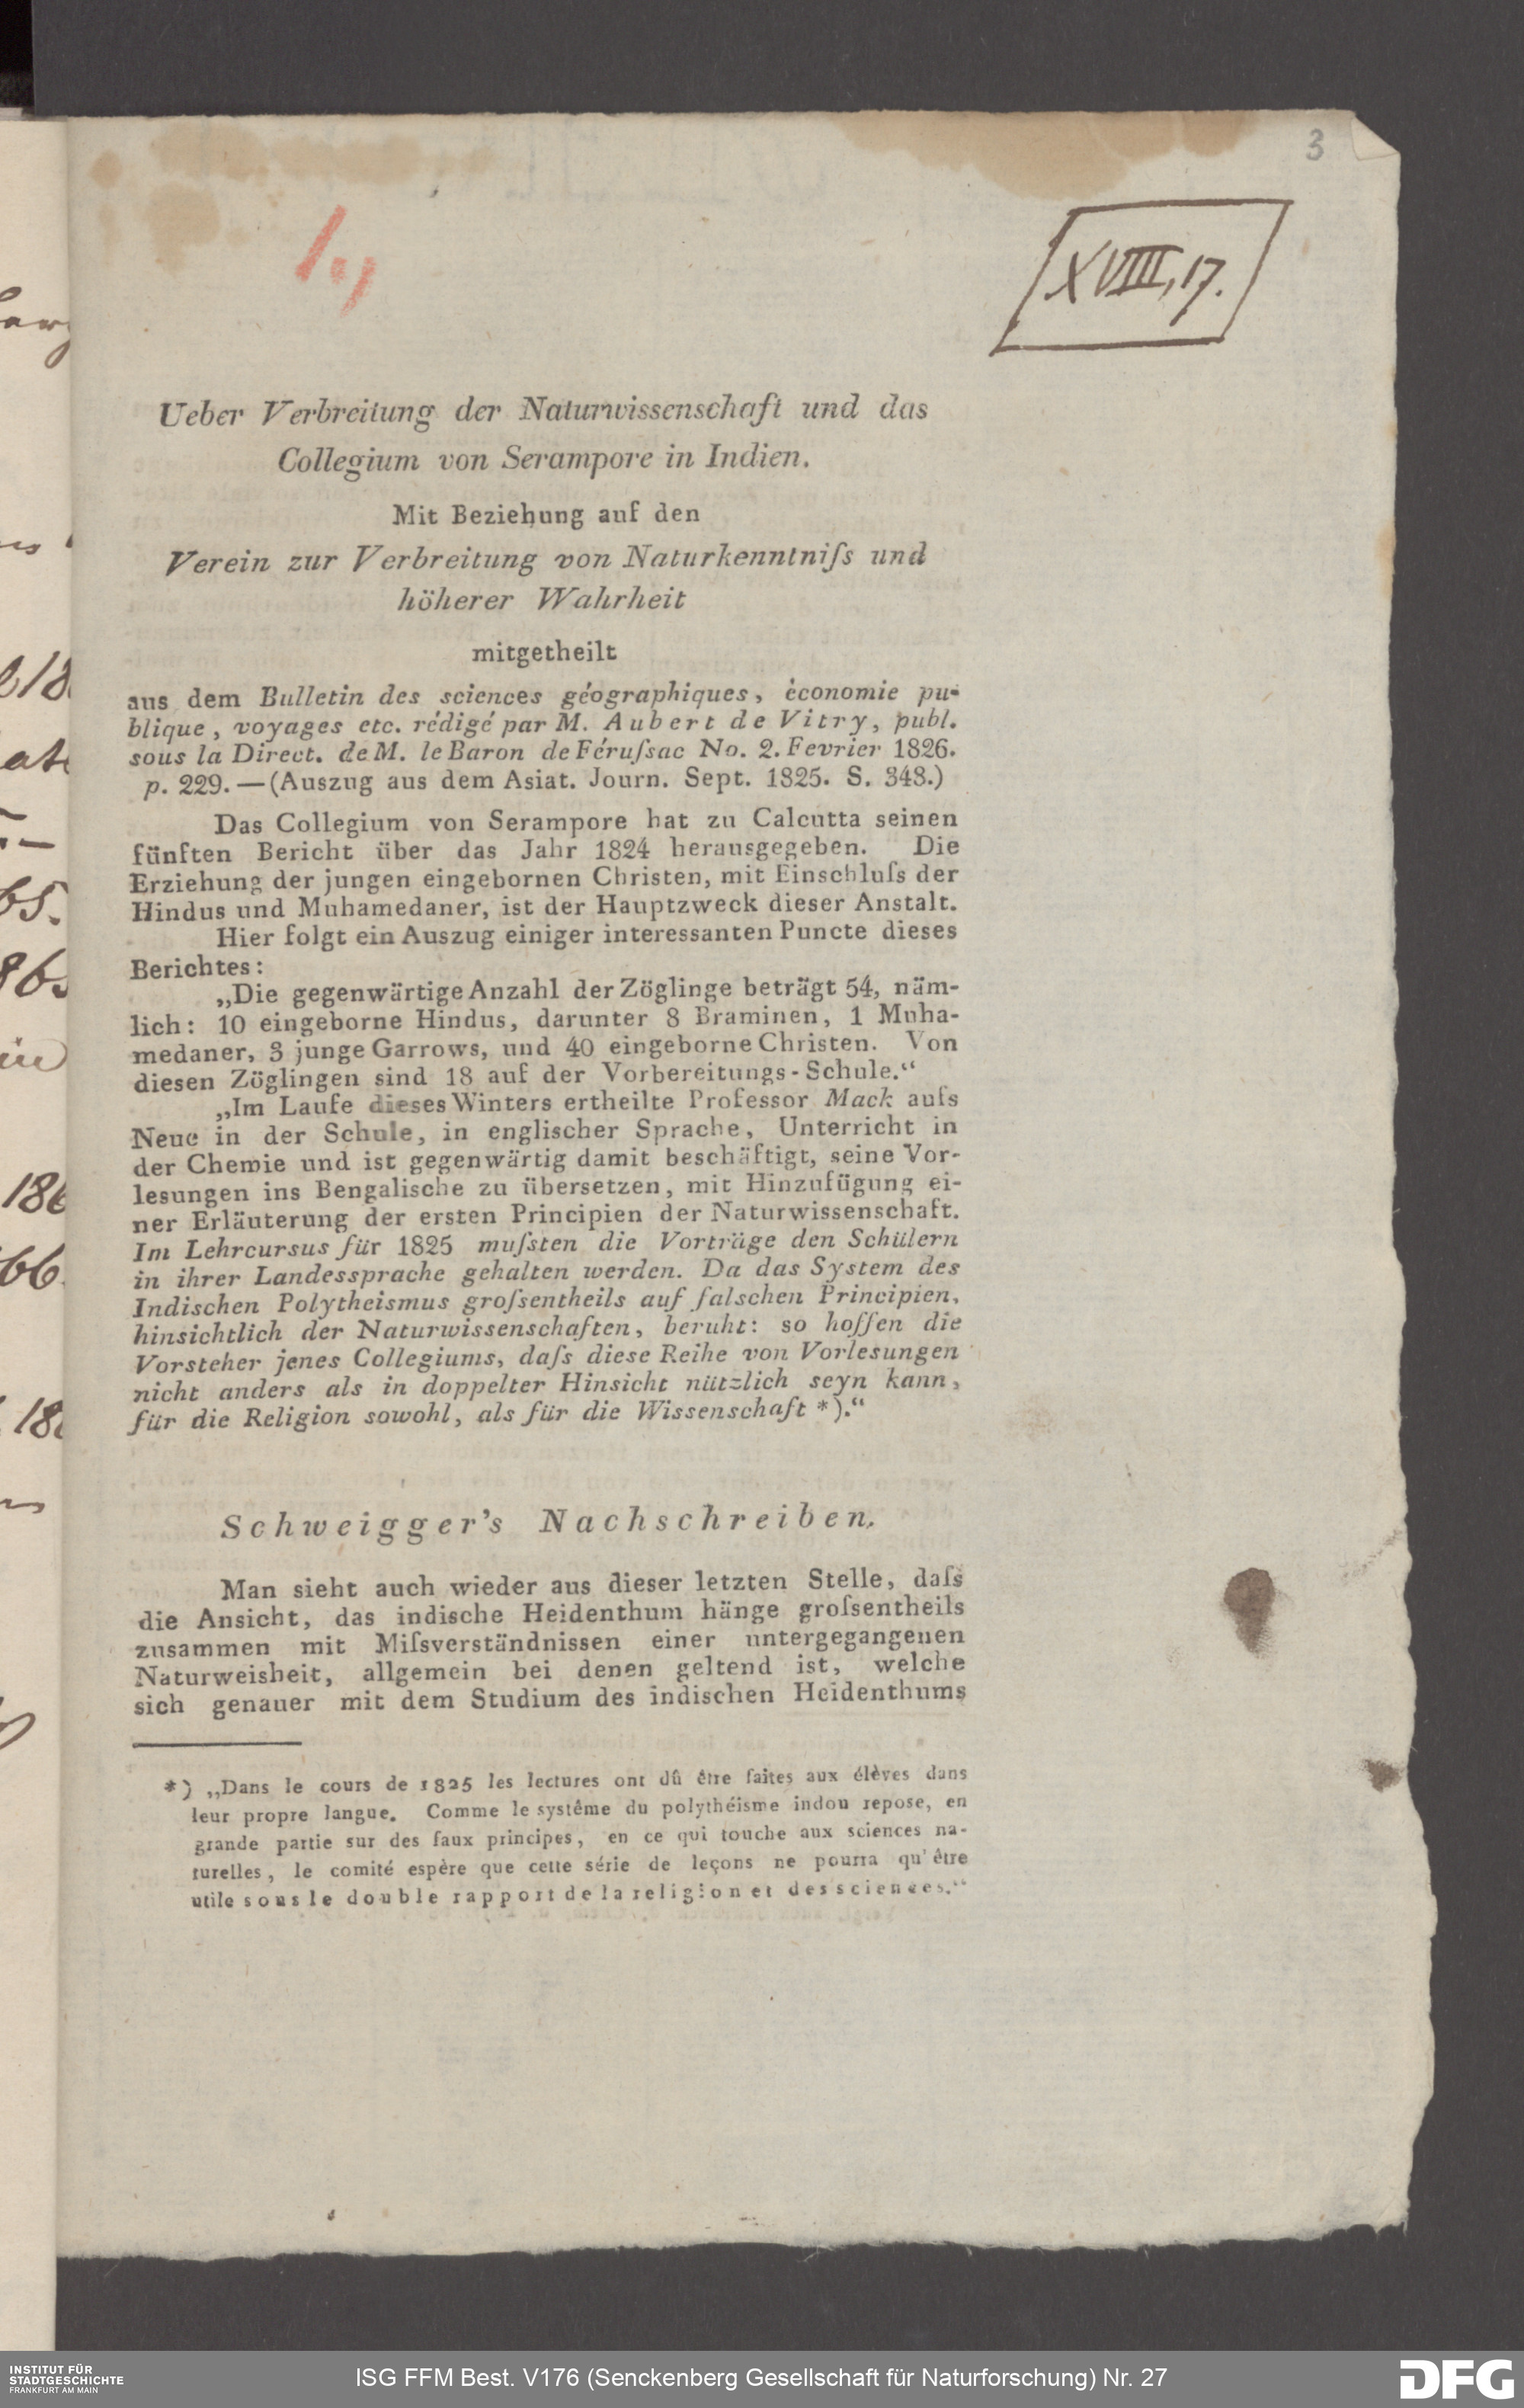 3
1.,
XVIIII, 17.
Ueber Verbreitung der Naturwissenschaft und das
Collegium von Serampore in Indien.
Mit Beziehung auf den
Verein zur Verbreitung von Naturkenntniſs und
höherer Wahrheit
mitgetheilt
aus dem Bulletin des sciences géographiques, èconomie pu-
blique, voyages etc. rédigé par M. Aubert de Vitry, publ.
sous la Direct. de M. le Baron de Féruſsac No. 2. Fevrier 1826.
p. 229. — (Auszug aus dem Asiat. Journ. Sept. 1825. S. 348.)
Das Collegium von Serampore hat zu Calcutta seinen
fünften Bericht über das Jahr 1824 herausgegeben. Die
Erziehung der jungen eingebornen Christen, mit Einschluſs der
Hindus und Muhamedaner, ist der Hauptzweck dieser Anstalt.
Hier folgt ein Auszug einiger interessanten Puncte dieses
Berichtes:
„Die gegenwärtige Anzahl der Zöglinge beträgt 54, näm-
lich: 10 eingeborne Hindus, darunter 8 Braminen, 1 Muha-
medaner, 3 junge Garrows, und 40 eingeborne Christen. Von
diesen Zöglingen sind 18 auf der Vorbereitungs-Schule.“
„Im Laufe dieses Winters ertheilte Professor Mack aufs
Neue in der Schule, in englischer Sprache, Unterricht in
der Chemie und ist gegenwärtig damit beschäftigt, seine Vor-
lesungen ins Bengalische zu übersetzen, mit Hinzufügung ei-
ner Erläuterung der ersten Principien der Naturwissenschaft.
Im Lehrcursus für 1825 muſsten die Vorträge den Schülern
in ihrer Landessprache gehalten werden. Da das System des
Indischen Polytheismus groſsentheils auf falschen Principien,
hinsichtlich der Naturwissenschaften, beruht: so hoffen die
Vorsteher jenes Collegiums, daſs diese Reihe von Vorlesungen
nicht anders als in doppelter Hinsicht nützlich seyn kann,
für die Religion sowohl, als für die Wissenschaft *).“
Schweigger's Nachschreiben.
Man sieht auch wieder aus dieser letzten Stelle, daſs
die Ansicht, das indische Heidenthum hänge groſsentheils
zusammen mit Miſsverständnissen einer untergegangenen
Naturweisheit, allgemein bei denen geltend ist, welche
sich genauer mit dem Studium des indischen Heidenthums
*) „Dans le cours de 1825 les lectures ont dû être faites aux élèves dans
leur propre langue. Comme le systême du polythéisme indou repose, en
grande partie sur des faux principes, en ce qui touche aux sciences na-
turelles, le comité espère que cette série de leçons ne pourra qu'être
utile sous le double rapport de la religion et des sciences.“
INSTITUT FÜR
STADTGESCHICHTE
FRANKFURT AM MAIN
ISG FFM Best. V176 (Senckenberg Gesellschaft für Naturforschung) Nr. 27
DFG